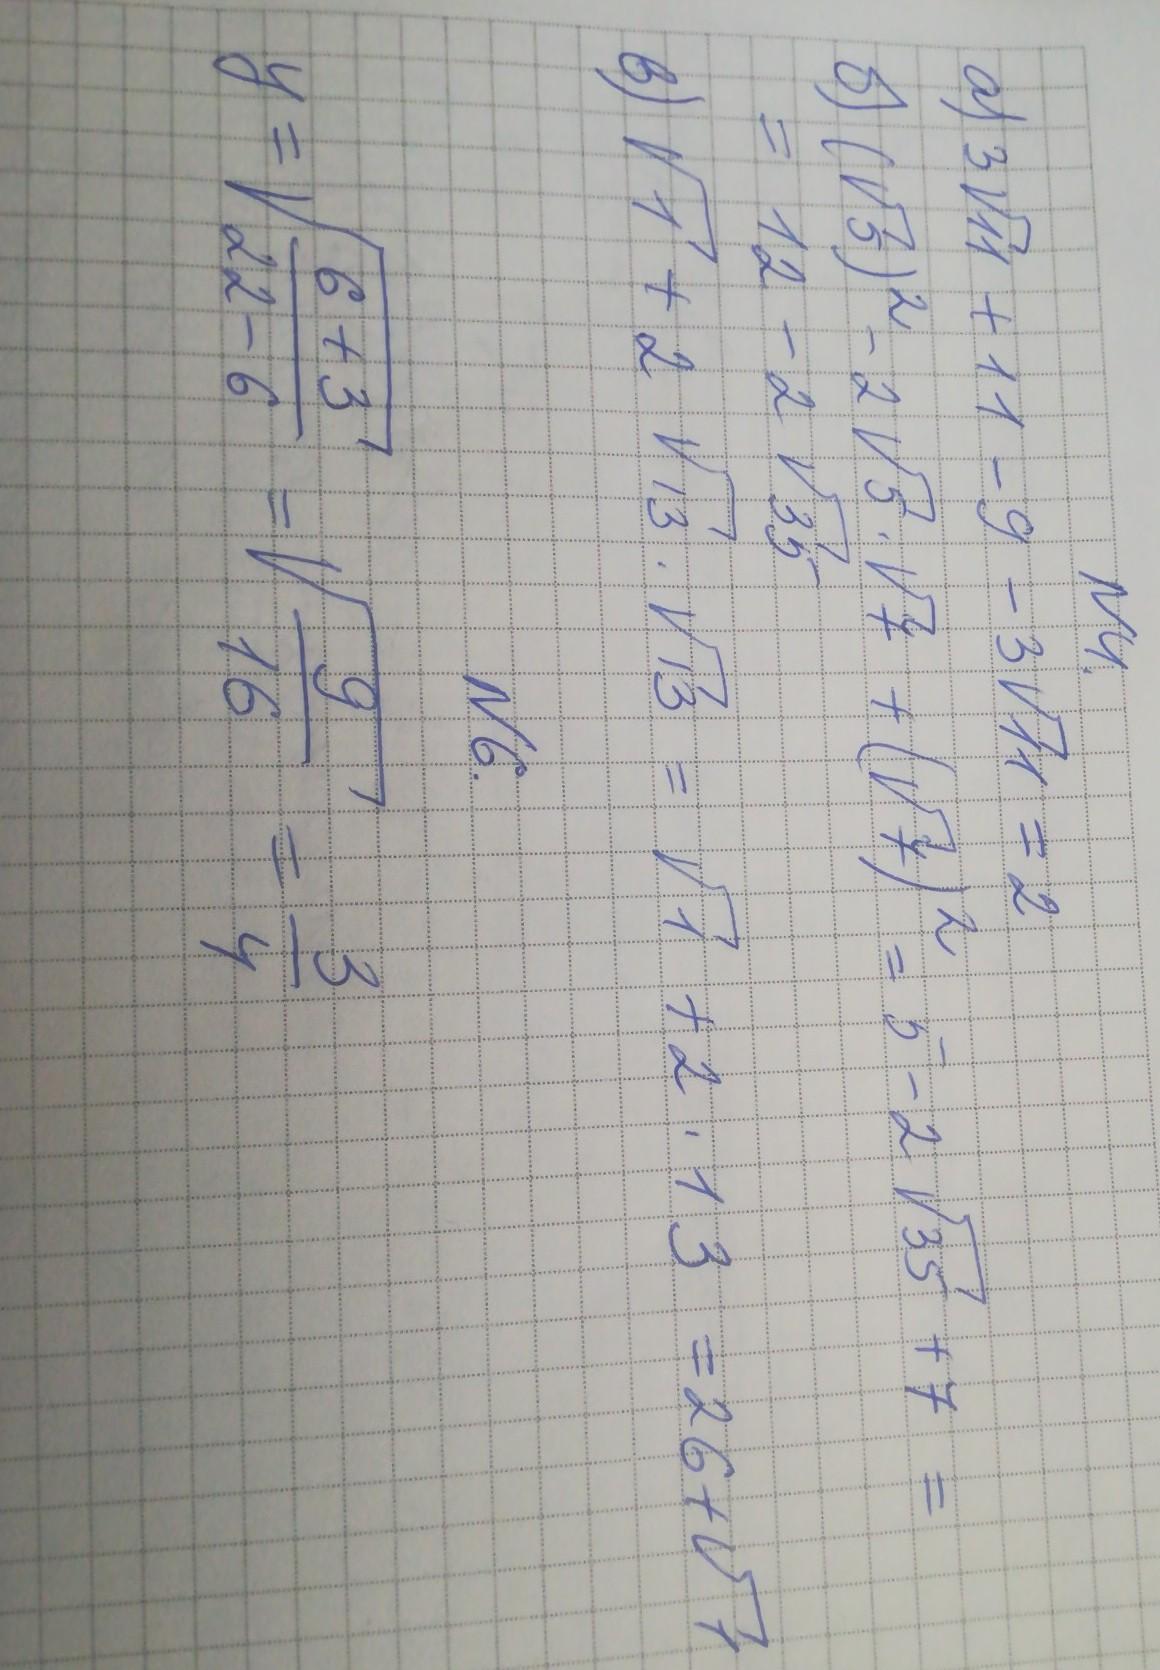 N4.
а) 3√11 + 11 - 9 - 3√11 = 2
б) (√5)² - 2√5 · √7 + (√7)² = 5 - 2√35 + 7 =
= 12 - 2√35
в) √1 + 2√13 · √13 = √1 + 2 · 13 = 26 + √1
N6.
y = √((6+3)/(22-6)) = √(9/16) = 3/4